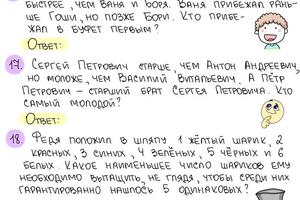 быстрее, чем Ваня и Боря. Ваня прибежал рань-
ше Гоши, но позже Бори. Кто прибе-
жал в буфет первым?
Ответ:
17. Сергей Петрович старше, чем Антон Андреевич,
но моложе, чем Василий Витальевич. А Пётр
Петрович – старший брат Сергея Петровича. Кто
самый молодой?
Ответ:
18. Федя положил в шляпу 1 жёлтый шарик, 2
красных, 3 синих, 4 зелёных, 5 чёрных и 6
белых. Какое наименьшее число шариков ему
необходимо вытащить, не глядя, чтобы среди них
гарантированно нашлось 5 одинаковых?